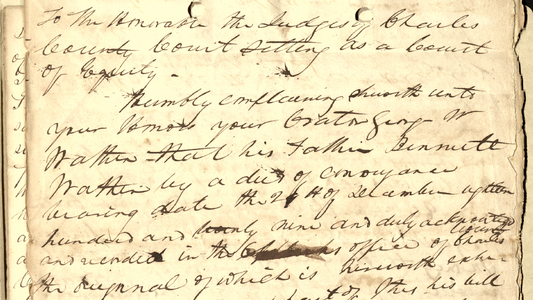 To The Honorable the Judges of Charles
County Court sitting as a Court
of Equity.
Humbly complaining sheweth unto
your Honors your Orator George W
Wathen that his Father Bennett
Wathen by a deed of conveyance
bearing date the 24th of December eighteen
hundred and twenty nine and duly acknowledged
and recorded in the office of Charles
County
the original of which is herewith exhi-
of this his bill